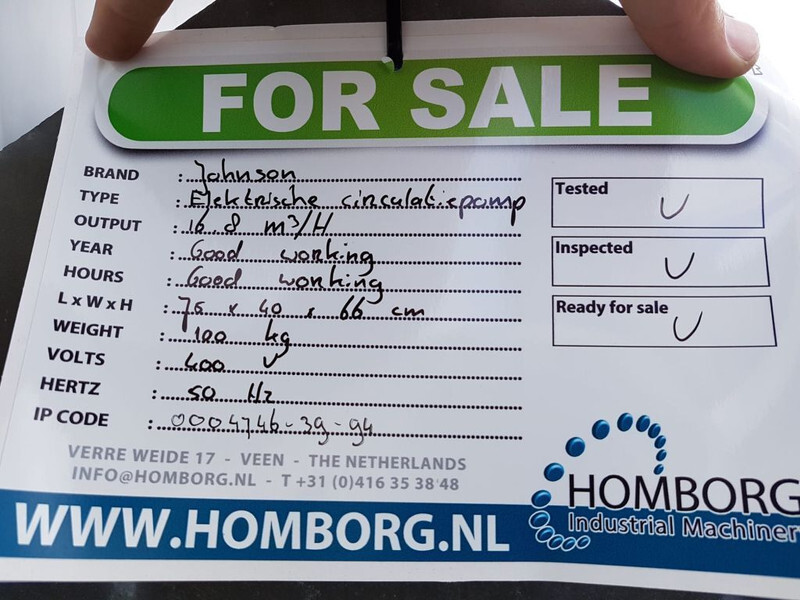 FOR SALE
BRAND : Johnson
TYPE : Elektrische circulatiepomp
OUTPUT : 16.8 m³/H
YEAR : Good working
HOURS : Good working
L x W x H : 75 x 40 x 66 cm
WEIGHT : 100 kg
VOLTS : 400 v
HERTZ : 50 Hz
IP CODE : 0004746-39-94
Tested
Inspected
Ready for sale
VERRE WEIDE 17 - VEEN - THE NETHERLANDS
INFO@HOMBORG.NL - T +31 (0)416 35 38 48
WWW.HOMBORG.NL
HOMBORG
Industrial Machiner